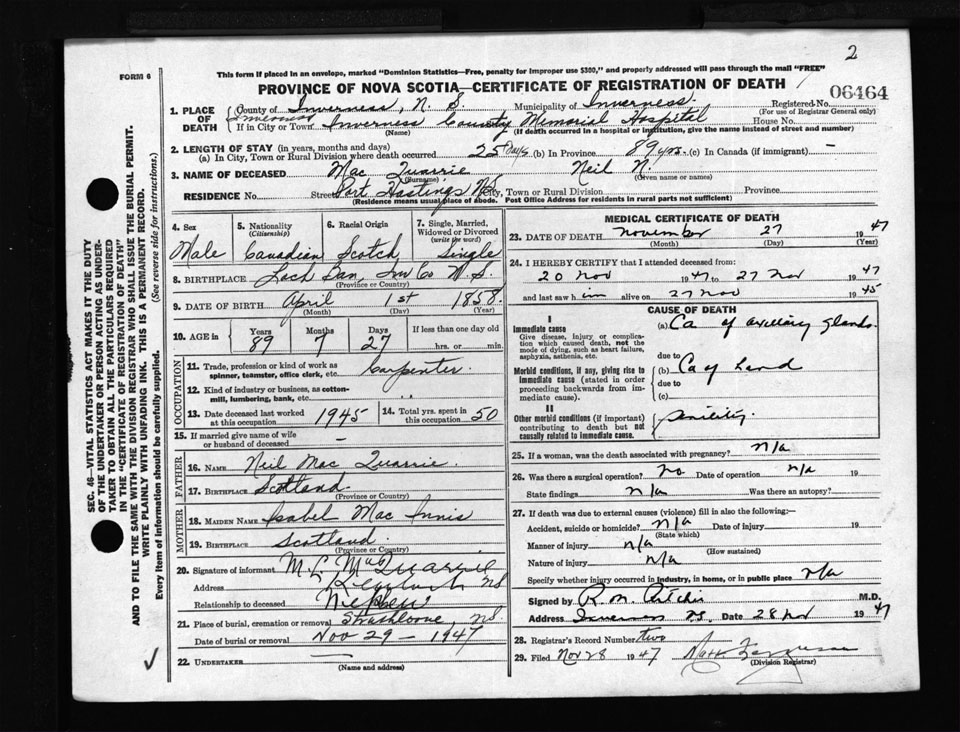 2
FORM 6
This form if placed in an envelope, marked "Dominion Statistics—Free, penalty for improper use $300," and properly addressed will pass through the mail "FREE"
PROVINCE OF NOVA SCOTIA—CERTIFICATE OF REGISTRATION OF DEATH
06464
1. PLACE OF DEATH
County of Inverness, N. S. Municipality of Inverness. Registered No.
(For use of Registrar General only)
Inverness
If in City or Town Inverness County Memorial Hospital House No.
(Name) (If death occurred in a hospital or institution, give the name instead of street and number)
2. LENGTH OF STAY (in years, months and days)
(a) In City, Town or Rural Division where death occurred 25 Days (b) In Province 89 yrs. (c) In Canada (if immigrant) —
3. NAME OF DECEASED Mac Quarrie Neil N.
(Surname) (Given name or names)
RESIDENCE No. Street Port Hastings N.S. City, Town or Rural Division Province
(Residence means usual place of abode. Post Office Address for residents in rural parts not sufficient)
4. Sex
Male
5. Nationality
(Citizenship)
Canadian
6. Racial Origin
Scotch
7. Single, Married, Widowed or Divorced
(write the word)
Single
8. BIRTHPLACE Loch Ban, Inv Co N.S.
(Province or Country)
9. DATE OF BIRTH April 1st 1858.
(Month) (Day) (Year)
10. AGE in
Years 89
Months 7
Days 27
If less than one day old
hrs. or min.
OCCUPATION
11. Trade, profession or kind of work as spinner, teamster, office clerk, etc. Carpenter.
12. Kind of industry or business, as cotton-mill, lumbering, bank, etc. ..
13. Date deceased last worked at this occupation 1945
14. Total yrs. spent in this occupation 50
15. If married give name of wife or husband of deceased —
FATHER
16. NAME Neil Mac Quarrie.
17. BIRTHPLACE Scotland.
(Province or Country)
MOTHER
18. MAIDEN NAME Isabel Mac Innis
19. BIRTHPLACE Scotland.
(Province or Country)
20. Signature of informant M. L. MacQuarrie
Address NS
Relationship to deceased Nephew
21. Place of burial, cremation or removal Strathlorne, N.S.
Date of burial or removal Nov 29 - 1947
22. UNDERTAKER —
(Name and address)
MEDICAL CERTIFICATE OF DEATH
23. DATE OF DEATH November 27 1947
(Month) (Day) (Year)
24. I HEREBY CERTIFY that I attended deceased from:
20 Nov 1947 to 27 Nov 1947
and last saw him alive on 27 Nov 1945
CAUSE OF DEATH
I
Immediate cause
Give disease, injury or complication which caused death, not the mode of dying, such as heart failure, asphyxia, asthenia, etc.
(a) Ca of axillary glands.
due to
Morbid conditions, if any, giving rise to immediate cause (stated in order proceeding backwards from immediate cause).
(b) Ca of hand
due to
(c)
II
Other morbid conditions (if important) contributing to death but not causally related to immediate cause.
senility.
25. If a woman, was the death associated with pregnancy? n/a
26. Was there a surgical operation? no Date of operation n/a 19
State findings n/a Was there an autopsy?
27. If death was due to external causes (violence) fill in also the following:—
Accident, suicide or homicide? n/a Date of injury 19
(State which)
Manner of injury n/a
(How sustained)
Nature of injury n/a
Specify whether injury occurred in industry, in home, or in public place n/a
Signed by R. M. Ritchie M.D.
Address Inverness NS. Date 28 Nov 1947
28. Registrar's Record Number two
29. Filed Nov 28 1947
(Division Registrar)
SEC. 46—VITAL STATISTICS ACT MAKES IT THE DUTY
OF THE UNDERTAKER OR PERSON ACTING AS UNDER-
TAKER TO OBTAIN ALL THE PARTICULARS REQUIRED
IN THE "CERTIFICATE OF REGISTRATION OF DEATH"
AND TO FILE THE SAME WITH THE DIVISION REGISTRAR WHO SHALL ISSUE THE BURIAL PERMIT.
WRITE PLAINLY WITH UNFADING INK. THIS IS A PERMANENT RECORD.
Every item of information should be carefully supplied. (See reverse side for instructions.)